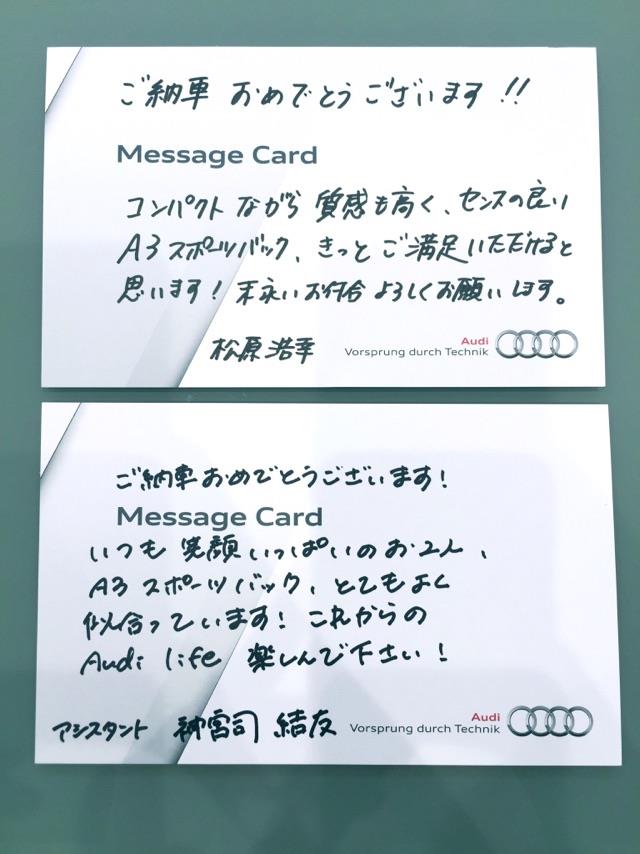 ご納車 おめでとうございます!!
Message Card
コンパクトながら 質感も高く、センスの良い
A3スポーツバック、きっとご満足いただけると
思います! 末永いお付合 よろしくお願いします。
松原浩幸
Audi
Vorsprung durch Technik
ご納車おめでとうございます!
Message Card
いつも笑顔いっぱいのお2人、
A3スポーツバック、とてもよく
似合っています! これからの
Audi life 楽しんで下さい!
アシスタント 神宮司 結友
Audi
Vorsprung durch Technik